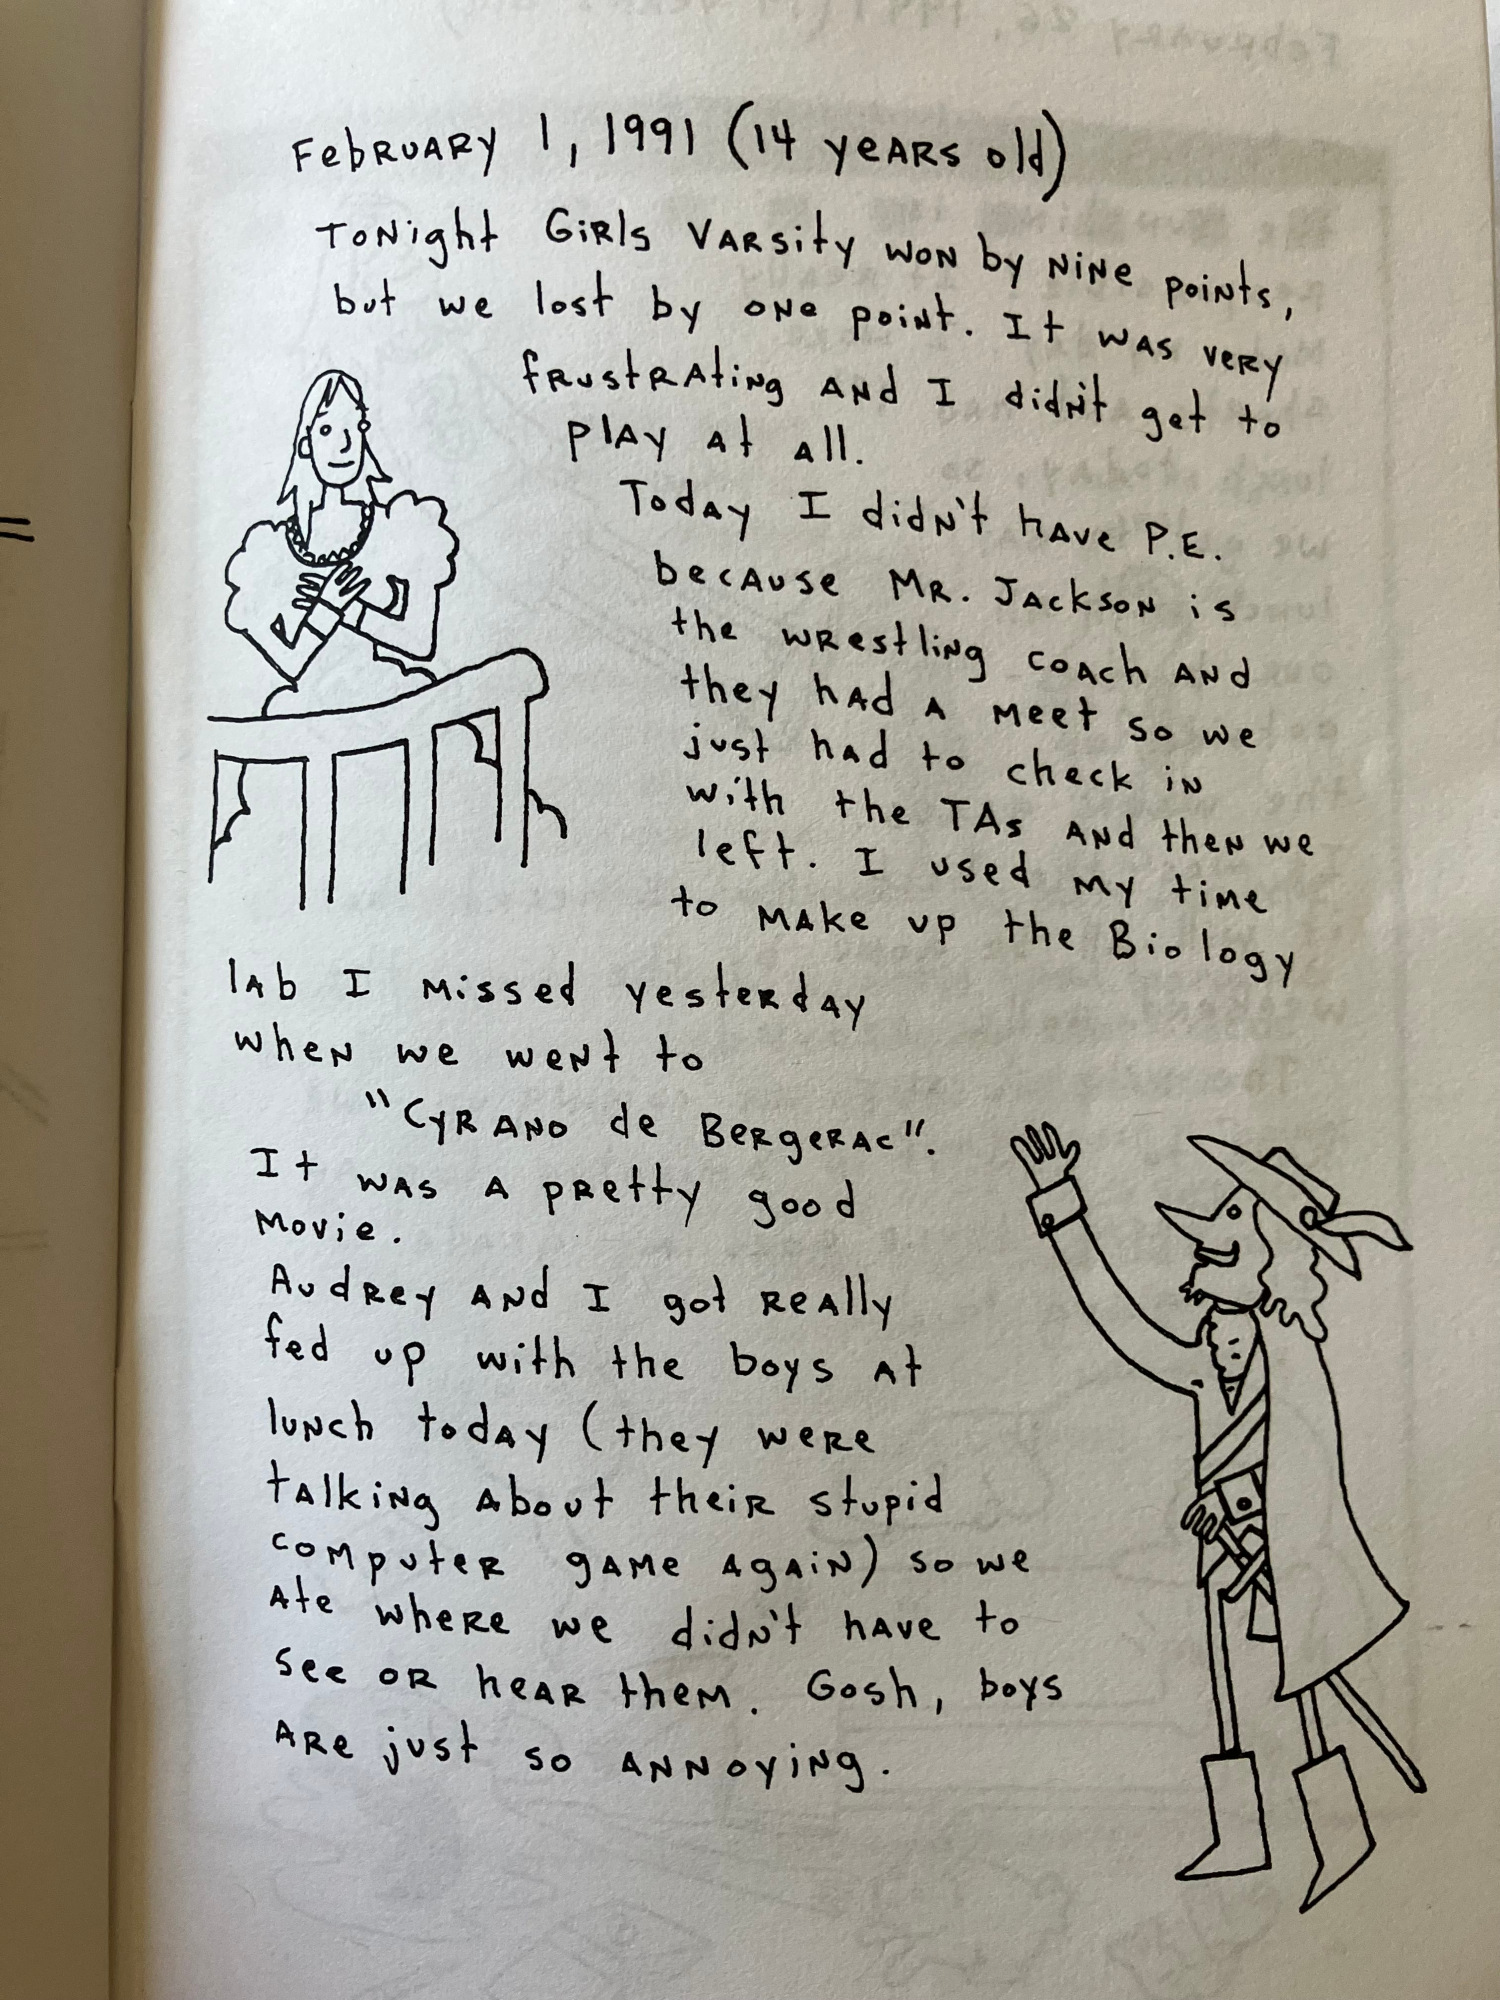 February 1, 1991 (14 years old)
Tonight Girls Varsity won by nine points,
but we lost by one point. It was very
frustrating and I didn't get to
play at all.
Today I didn't have P.E.
because Mr. Jackson is
the wrestling coach and
they had a meet so we
just had to check in
with the TAs and then we
left. I used my time
to make up the Biology
lab I missed yesterday
when we went to
"Cyrano de Bergerac".
It was a pretty good
movie.
Audrey and I got really
fed up with the boys at
lunch today (they were
talking about their stupid
computer game again) so we
ate where we didn't have to
see or hear them. Gosh, boys
are just so annoying.